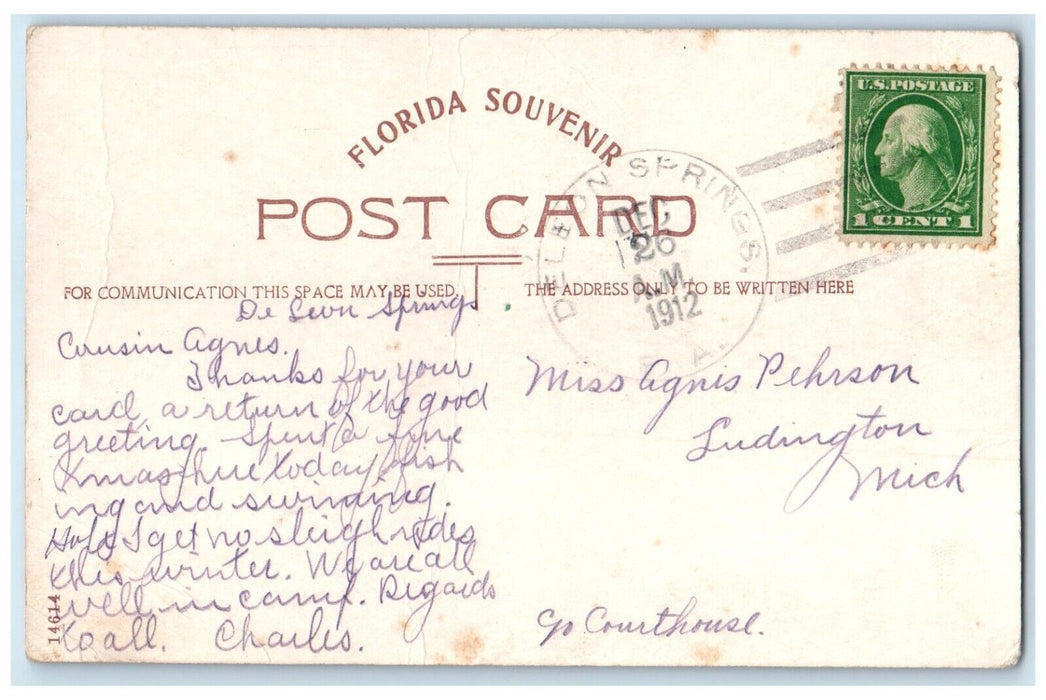 FLORIDA SOUVENIR
POST CARD
FOR COMMUNICATION THIS SPACE MAY BE USED.
THE ADDRESS ONLY TO BE WRITTEN HERE
U.S. POSTAGE
1 CENT 1
DELEON SPRINGS.
DEC
26
A.M.
1912
De Leon Springs
Cousin Agnes.
Thanks for your
card, a return of the good
greeting. Spent a fine
Xmas here today, fish
ing and swimming.
I get no sleigh rides
this winter. We are all
well in camp. Regards
to all. Charles.
14614
Miss Agnes Pehrson
Ludington
Mich
Courthouse.